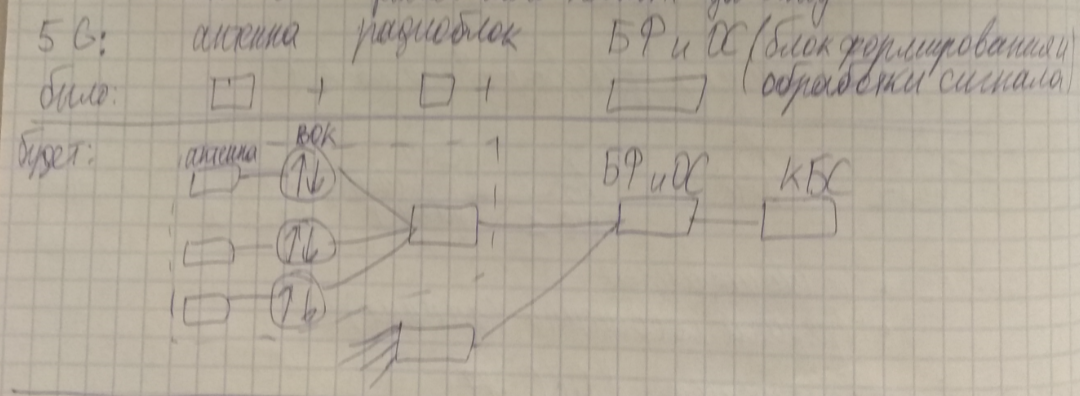 5G: антенна радиоблок БФ и ОС (блок формирования и
было: + + обработки сигнала)
будет: антенна ВОК
БФ и ОС КБС